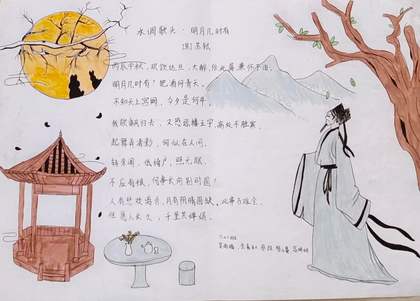 水调歌头·明月几时有
[宋]苏轼
丙辰中秋，欢饮达旦，大醉，作此篇，兼怀子由。
明月几时有？把酒问青天。
不知天上宫阙，今夕是何年。
我欲乘风归去，又恐琼楼玉宇，高处不胜寒。
起舞弄清影，何似在人间。
转朱阁，低绮户，照无眠。
不应有恨，何事长向别时圆？
人有悲欢离合，月有阴晴圆缺，此事古难全。
但愿人长久，千里共婵娟。